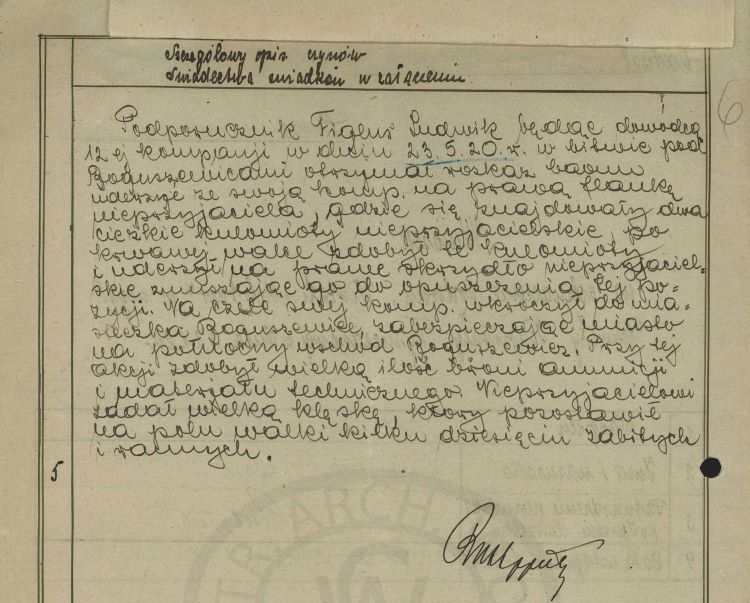 Szczegółowy opis czynów
Świadectwa świadków w załączeniu
Podporucznik Figlus Ludwik będąc dowódcą
12 ej kompanji w dniu 23.5.20. r. w bitwie pod
Boguszewicami otrzymał rozkaz baonu
uderzyć ze swoją komp. na prawą flankę
nieprzyjaciela, gdzie się znajdowały dwa
ciężkie kulomioty nieprzyjacielskie, po
krwawej walce zdobył te kulomioty
i uderzył na prawe skrzydło nieprzyjaciel-
skie zmuszając go do opuszczenia tej po-
zycji. Na czele swej komp. wkroczył do mia-
steczka Boguszewice, zabezpieczając miasto
na północny wschód Boguszewicz. Przy tej
akcji zdobył wielką ilość broni amunicji
i materjału technicznego. Nieprzyjacielowi
zadał wielką klęskę, który pozostawił
na polu walki kilku dziesięciu zabitych
i rannych.
5
6
TR. ARCH.